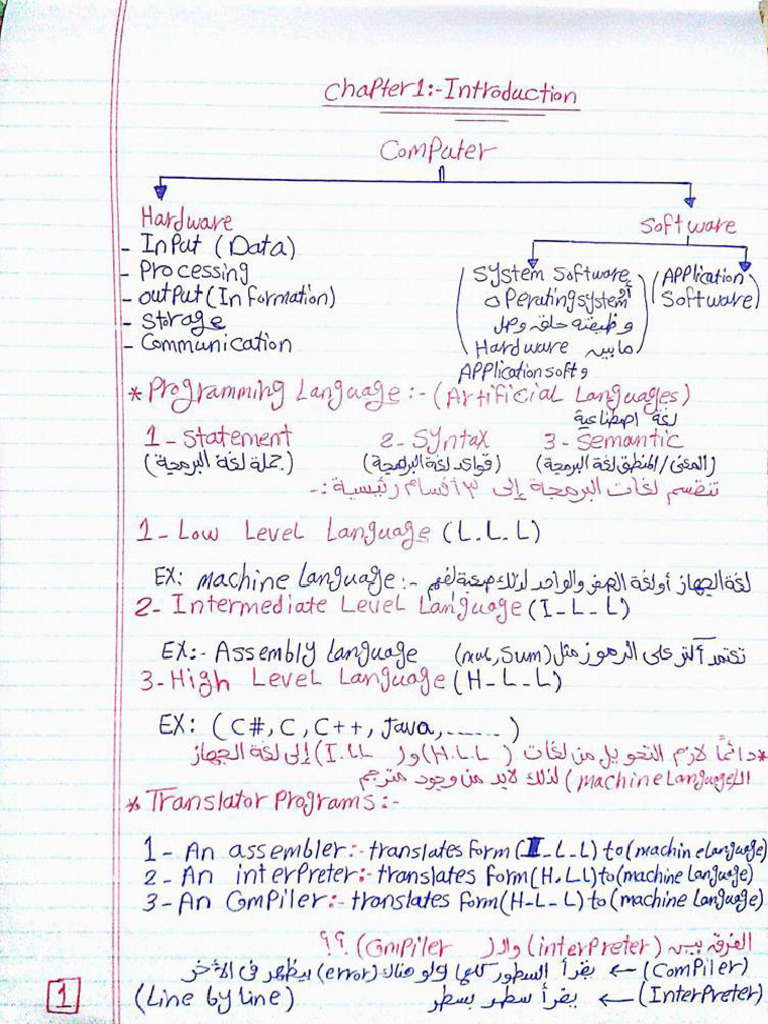 Chapter1:-Introduction
Computer
Hardware
Software
- Input (Data)
- Processing
- output (Information)
- Storage
- Communication
(System Software أو Operating system وظيفته حلقه وصل مابين Hardware و Application soft)
(Application Software)
* Programming Language:- (Artificial Languages)
لغة اصطناعية
1 - Statement 2 - Syntax 3 - Semantic
(جملة لغة البرمجة) (قواعد لغة البرمجة) (المعنى/المنطق لغة البرمجة)
تنقسم لغات البرمجة إلى ٣ أقسام رئيسية :-
1 - Low Level Language (L.L.L)
EX: machine Language :- لغة الجهاز أو لغة الصفر والواحد لذلك صعبة لفهم
2- Intermediate Level Language (I-L-L)
EX:- Assembly Language تعتمد أكثر على الرموز مثل (mul, Sum)
3-High Level Language (H-L-L)
EX: (C#, C, C++, Java, ......)
* دائماً لازم التحويل من لغات (H.L.L) و (I.LL) إلى لغة الجهاز
ال(machine Language) لذلك لابد من وجود مترجم
* Translator Programs:-
1 - An assembler:- translates form (I-L-L) to (machine language)
2 - An interpreter:- translates form (H.L.L) to (machine Language)
3 - An Compiler:- translates form (H-L-L) to (machine Language)
الفرق بين (interpreter) وال (Compiler) ؟؟
(Compiler) ← يقرأ السطور كلها ولو هناك (error) بيظهر في الأخر
(Interpreter) ← يقرأ سطر بسطر (Line by line)
1